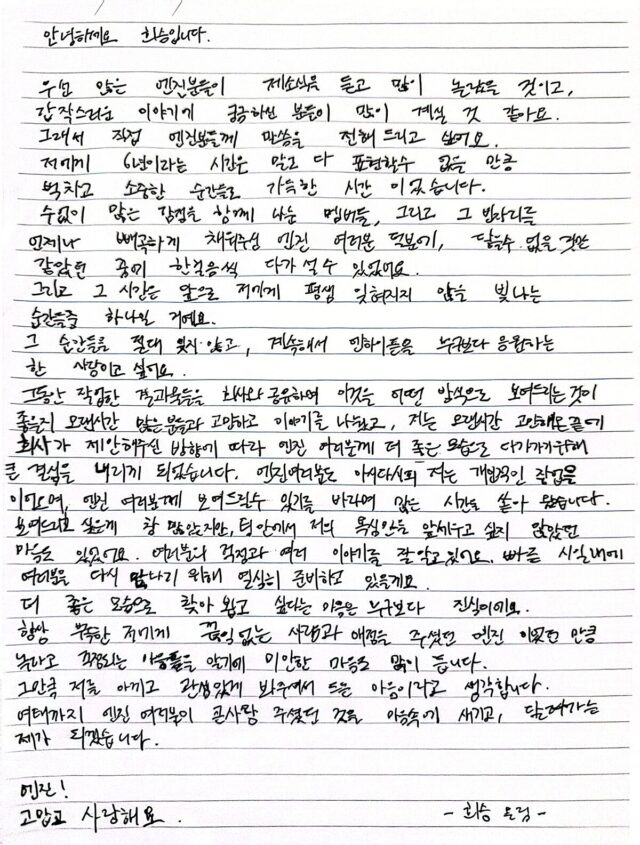 안녕하세요 희승입니다.
우선 많은 엔진분들이 제소식을 듣고 많이 놀랐을 것이고,
갑작스러운 이야기에 궁금하신 분들이 많이 계실 것 같아요.
그래서 직접 엔진분들께 말씀을 전해 드리고 싶어요.
저에게 6년이라는 시간은 말로 다 표현할수 없을 만큼
벅차고 소중한 순간들로 가득한 시간 이었습니다.
수없이 많은 감정을 함께 나눈 멤버들, 그리고 그 빈자리를
언제나 빼곡하게 채워주신 엔진 여러분 덕분에, 닿을수 없을 것만
같았던 꿈에 한걸음씩 다가 설 수 있었어요.
그리고 그 시간은 앞으로 저에게 평생 잊혀지지 않을 빛나는
순간들중 하나일 거에요.
그 순간들을 절대 잊지 않고, 계속해서 엔하이픈을 누구보다 응원하는
한 사람이고 싶어요.
그동안 작업한 결과물들을 회사와 공유하며 이것을 어떤 방식으로 보여드리는것이
좋을지 오랜시간 많은분들과 고민하고 이야기를 나눴고, 저는 오랜시간 고민해온끝에
회사가 제안해주신 방향에 따라 엔진 여러분께 더 좋은 모습으로 다가가기위해
큰 결심을 내리게 되었습니다. 엔진여러분도 아시다시피 저는 개인적인 작업을
이어오며, 엔진 여러분께 보여드릴수 있기를 바라며 많은 시간을 쏟아 왔습니다.
보여드리고 싶은게 참 많았지만, 팀 안에서 저의 욕심만을 앞세우고 싶지 않았던
마음도 있었어요. 여러분의 걱정과 여러 이야기를 잘 알고 있어요. 빠른 시일내에
여러분을 다시 만나기 위해 열심히 준비하고 있을게요.
더 좋은 모습으로 찾아 뵙고 싶다는 마음은 누구보다 진심이에요.
항상 부족한 저에게 끊임 없는 사랑과 애정을 주셨던 엔진 이었던 만큼
놀라고 걱정되는 마음들을 알기에 미안한 마음도 많이 듭니다.
그만큼 저를 아끼고 관심있게 봐주셔서 드는 마음이라고 생각합니다.
여태까지 엔진 여러분이 큰사랑 주셨던 것을 마음속에 새기고, 달려가는
제가 되겠습니다.
엔진!
고맙고 사랑해요.
- 희승 드림 -